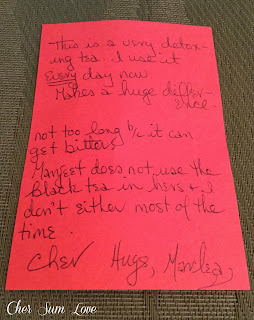 This is a very detox-
ing tea. I use it
every day now.
Makes a huge differ-
ence.
not too long b/c it can
get bitters
Manjeet does not use the
black tea in hers & I
don't either most of the
time.
Cher Hugs,
Cher Sum Love